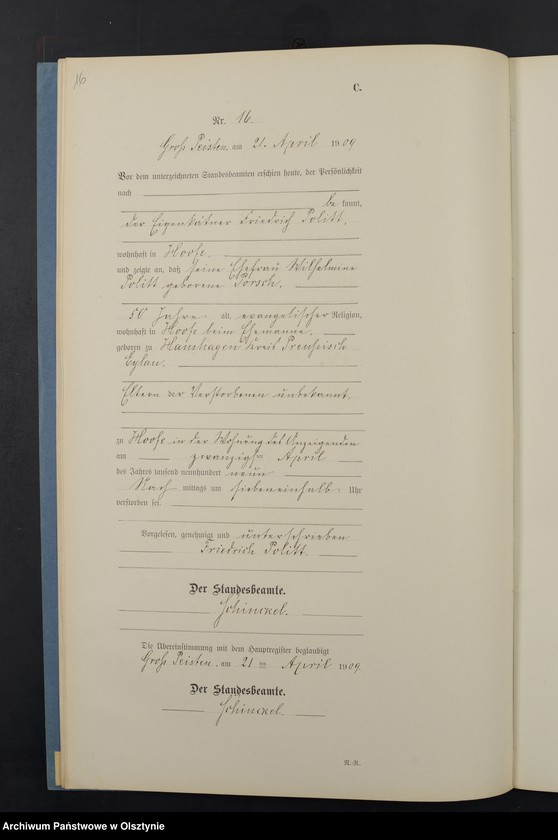 16
C.
Nr. 16.
Groß Peisten, am 21. April 1909
Vor dem unterzeichneten Standesbeamten erschien heute, der Persönlichkeit
nach
be kannt,
der Eigenkätner Friedrich Politt,
wohnhaft in Hoofe.
und zeigte an, daß seine Ehefrau Wilhelmine
Politt geborene Porsch.
50 Jahre alt, evangelischer Religion,
wohnhaft in Hoofe beim Ehemanne.
geboren zu Hanshagen Kreis Preußisch
Eylau.
Eltern der Verstorbenen unbekannt.
zu Hoofe in der Wohnung des Anzeigenden
am zwanzigsten April
des Jahres tausend neunhundert neun
Nach mittags um siebeneinhalb Uhr
verstorben sei.
Vorgelesen, genehmigt und unterschrieben
Friedrich Politt.
Der Standesbeamte.
Schinckel.
Die Übereinstimmung mit dem Hauptregister beglaubigt
Groß Peisten, am 21 ten April 1909.
Der Standesbeamte.
Schinckel.
N.-R.
Archiwum Państwowe w Olsztynie